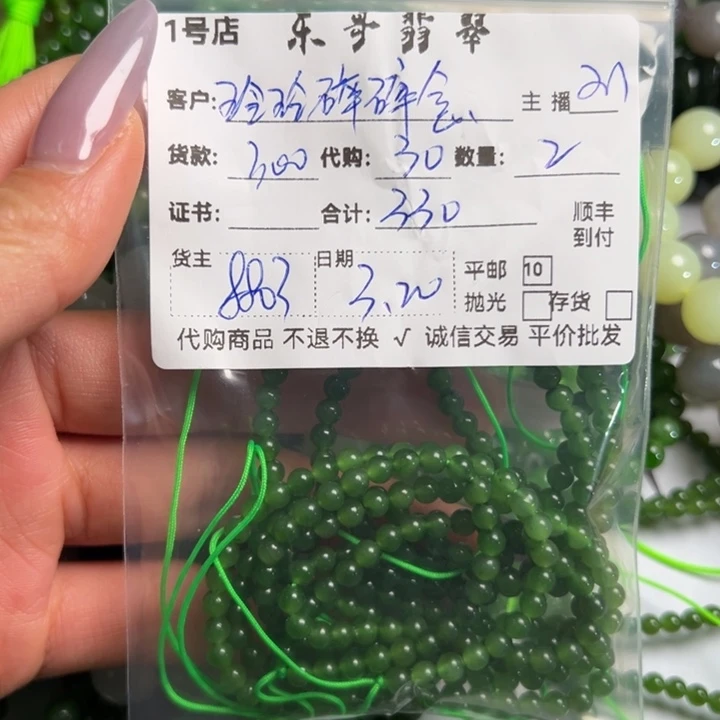 1号店 乐哥翡翠
客户: 玲玲碎碎念 主播
货款: 300 代购: 30 数量: 2
证书: 合计: 330 顺丰
到付
货主 883 日期 3.20 平邮 10
抛光 存货
代购商品 不退不换 √ 诚信交易 平价批发